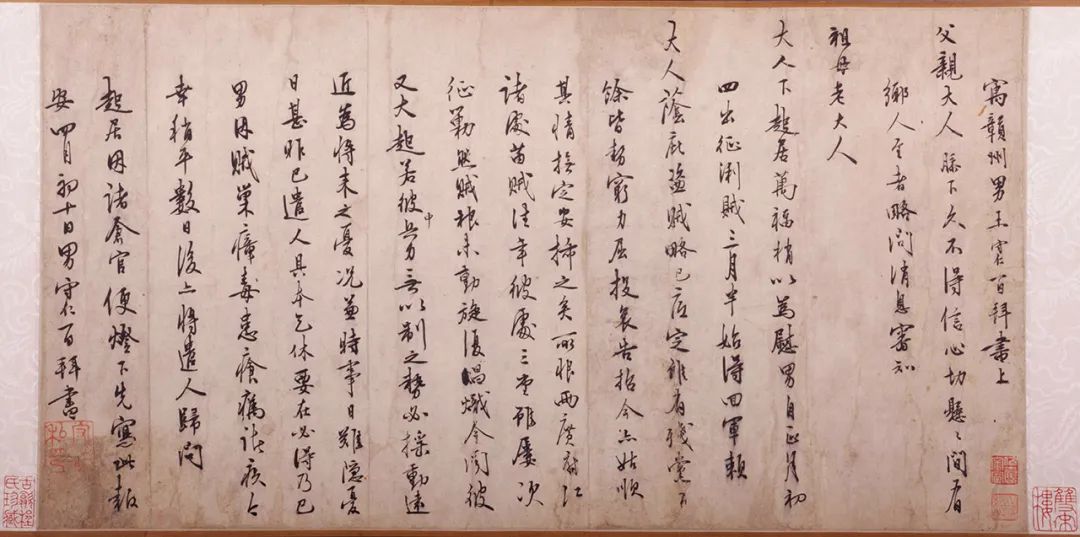 寓贛州男王守仁百拜書上
父親大人膝下久不得信心切懸〻間有
鄉人至者略問消息審知
祖母老大人
大人下起居萬福稍以為慰男自正月初
四出征浰賊三月半始得回軍賴
大人蔭庇盜賊略已底定雖有殘黨
餘皆勢窮力屈投哀告招今亦姑順
其情撫定安插之矣所恨兩廣府江
諸處苗賊往年彼處三堂雖屢次
征勦然賊根未動旋復昌熾今聞彼
又大起若彼中兵力無以制之勢必搖動遠
近為將來之憂況兼時事日難隱憂
日甚昨已遣人具本乞休要在必得乃已
男因賊巢瘴毒患瘡癘諸疾今
幸稍平數日後亦將遣人歸問
起居因諸倉官便燈下先寫此報
安四月初十日男守仁百拜書